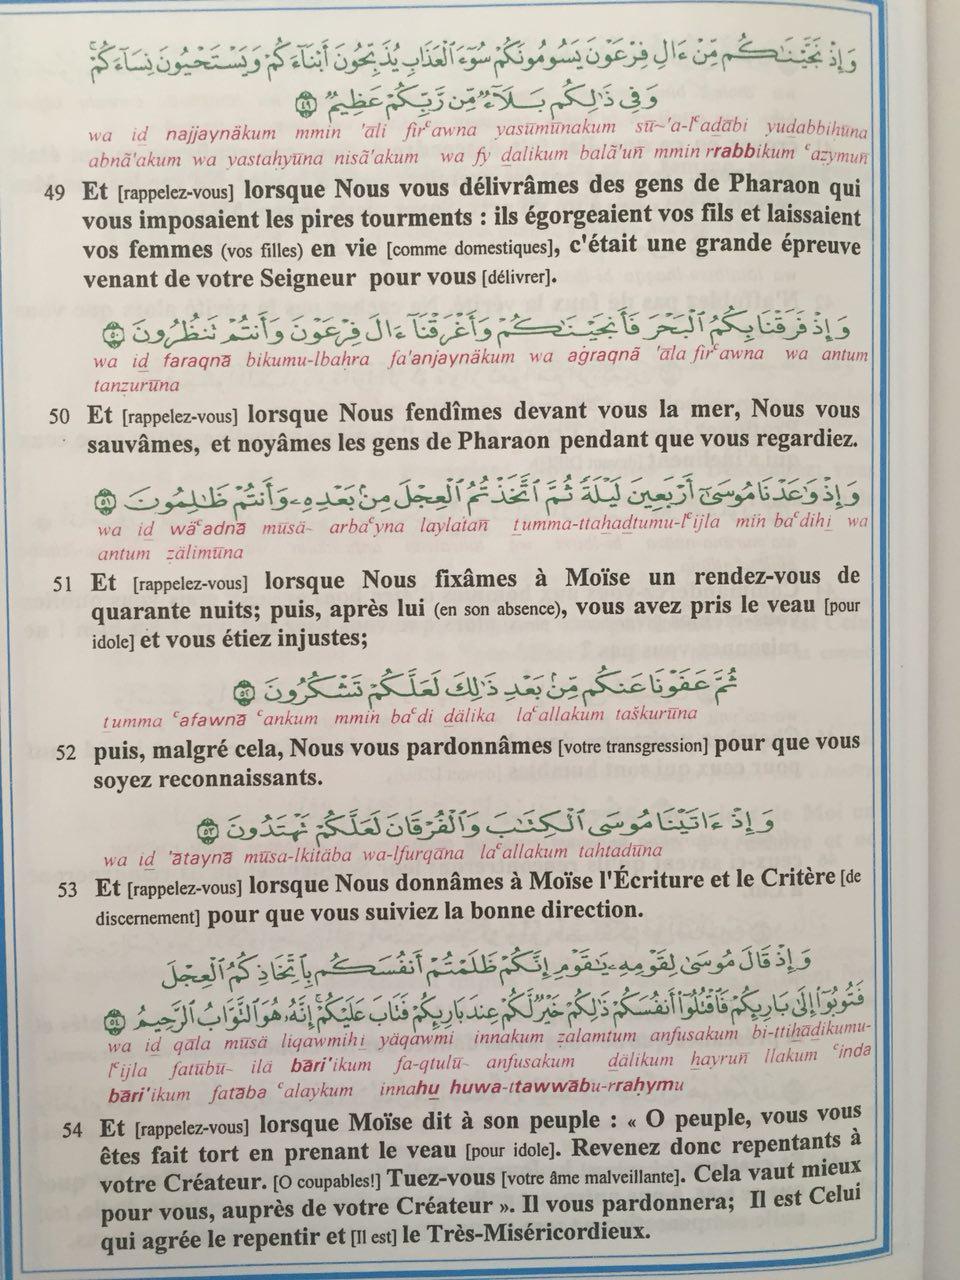 وَإِذْ نَجَّيْنَـٰكُم مِّنْ ءَالِ فِرْعَوْنَ يَسُومُونَكُمْ سُوٓءَ ٱلْعَذَابِ يُذَبِّحُونَ أَبْنَآءَكُمْ وَيَسْتَحْيُونَ نِسَآءَكُمْ ۚ
وَفِى ذَٰلِكُم بَلَآءٌ مِّن رَّبِّكُمْ عَظِيمٌ ٤٩
wa id̲ najjaynäkum mmin 'āli firᶜawna yasūmūnakum sū~'a-lᶜad̲ābi yud̲abbiḥūna
abnã'akum wa yastaḥyūna nisã'akum wa fy d̲alikum balã'un̄ mmin rrabbikum ᶜaẓymun̄
49 Et [rappelez-vous] lorsque Nous vous délivrâmes des gens de Pharaon qui
vous imposaient les pires tourments : ils égorgeaient vos fils et laissaient
vos femmes (vos filles) en vie [comme domestiques], c'était une grande épreuve
venant de votre Seigneur pour vous [délivrer].
وَإِذْ فَرَقْنَا بِكُمُ ٱلْبَحْرَ فَأَنجَيْنَـٰكُمْ وَأَغْرَقْنَآ ءَالَ فِرْعَوْنَ وَأَنتُمْ تَنظُرُونَ ٥٠
wa id̲ faraqnā bikumu-lbaḥra fa'anjaynäkum wa aġraqnã 'āla firᶜawna wa antum
tanẓurūna
50 Et [rappelez-vous] lorsque Nous fendîmes devant vous la mer, Nous vous
sauvâmes, et noyâmes les gens de Pharaon pendant que vous regardiez.
وَإِذْ وَٰعَدْنَا مُوسَىٰٓ أَرْبَعِينَ لَيْلَةً ثُمَّ ٱتَّخَذْتُمُ ٱلْعِجْلَ مِنۢ بَعْدِهِۦ وَأَنتُمْ ظَـٰلِمُونَ ٥١
wa id̲ wäᶜadnā mūsä~ arbaᶜyna laylatan̄ t̲umma-ttaḫad̲tumu-lᶜijla min baᶜdihi̲ wa
antum ẓälimūna
51 Et [rappelez-vous] lorsque Nous fixâmes à Moïse un rendez-vous de
quarante nuits; puis, après lui (en son absence), vous avez pris le veau [pour
idole] et vous étiez injustes;
ثُمَّ عَفَوْنَا عَنكُم مِّنۢ بَعْدِ ذَٰلِكَ لَعَلَّكُمْ تَشْكُرُونَ ٥٢
t̲umma ᶜafawnā ᶜankum mmin baᶜdi d̲älika laᶜallakum taškurūna
52 puis, malgré cela, Nous vous pardonnâmes [votre transgression] pour que vous
soyez reconnaissants.
وَإِذْ ءَاتَيْنَا مُوسَى ٱلْكِتَـٰبَ وَٱلْفُرْقَانَ لَعَلَّكُمْ تَهْتَدُونَ ٥٣
wa id̲ 'ātaynā mūsa-lkitäba wa-lfurqāna laᶜallakum tahtadūna
53 Et [rappelez-vous] lorsque Nous donnâmes à Moïse l'Écriture et le Critère [de
discernement] pour que vous suiviez la bonne direction.
وَإِذْ قَالَ مُوسَىٰ لِقَوْمِهِۦ يَـٰقَوْمِ إِنَّكُمْ ظَلَمْتُمْ أَنفُسَكُم بِٱتِّخَاذِكُمُ ٱلْعِجْلَ
فَتُوبُوٓا۟ إِلَىٰ بَارِئِكُمْ فَٱقْتُلُوٓا۟ أَنفُسَكُمْ ذَٰلِكُمْ خَيْرٌ لَّكُمْ عِندَ بَارِئِكُمْ فَتَابَ عَلَيْكُمْ ۚ إِنَّهُۥ هُوَ ٱلتَّوَّابُ ٱلرَّحِيمُ ٥٤
wa id̲ qāla mūsä liqawmihi̲ yäqawmi innakum ẓalamtum anfusakum bi-ttiḫād̲ikumu-
lᶜijla fatūbū~ ilä bāri'ikum fa-qtulū~ anfusakum d̲älikum ḫayrun̄ llakum ᶜinda
bāri'ikum fatāba ᶜalaykum innahu̲ huwa-ttawwābu-rraḥymu
54 Et [rappelez-vous] lorsque Moïse dit à son peuple : « O peuple, vous vous
êtes fait tort en prenant le veau [pour idole]. Revenez donc repentants à
votre Créateur. [O coupables!] Tuez-vous [votre âme malveillante]. Cela vaut mieux
pour vous, auprès de votre Créateur ». Il vous pardonnera; Il est Celui
qui agrée le repentir et [Il est] le Très-Miséricordieux.